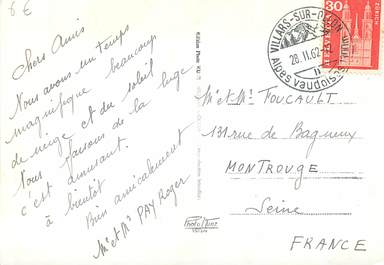 8€
Chers Amis
Nous avons un temps
magnifique beaucoup
de neige et du soleil
Nous faisons de la luge
c'est amusant.
à bientôt
Bien amicalement
Mr et Me PAY Roger
Photo
VILLARS-SUR-OLLON
28.11.62
Alpes vaudoises
30
ZÜRICH
Mr et Me FOUCAULT
131 rue de Bagneux
MONTROUGE
Seine
FRANCE